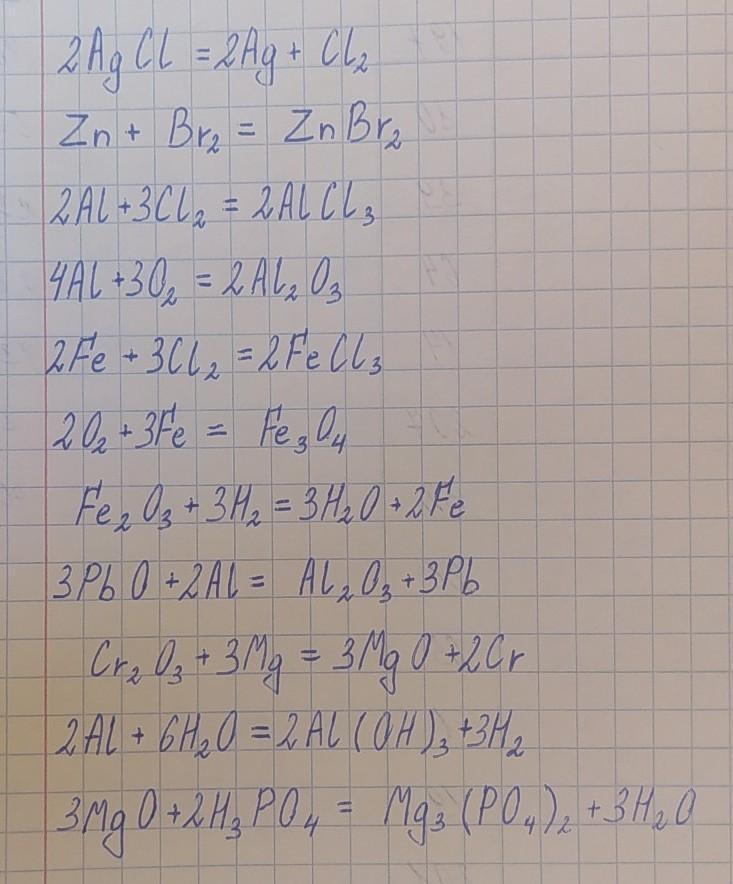 2AgCl = 2Ag + Cl₂
Zn + Br₂ = ZnBr₂
2Al + 3Cl₂ = 2AlCl₃
4Al + 3O₂ = 2Al₂O₃
2Fe + 3Cl₂ = 2FeCl₃
2O₂ + 3Fe = Fe₃O₄
Fe₂O₃ + 3H₂ = 3H₂O + 2Fe
3PbO + 2Al = Al₂O₃ + 3Pb
Cr₂O₃ + 3Mg = 3MgO + 2Cr
2Al + 6H₂O = 2Al(OH)₃ + 3H₂
3MgO + 2H₃PO₄ = Mg₃(PO₄)₂ + 3H₂O